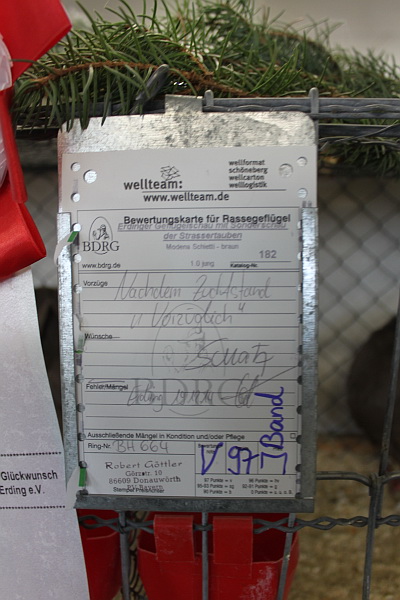 wellteam:
www.wellteam.de
wellformat
schöneberg
wellcarton
welllogistik
Bewertungskarte für Rassegeflügel
Erdinger Geflügelschau mit Sonderschau
der Strassertauben
Modena Schietti - braun
BDRG
www.bdrg.de
1.0 jung
Katalog-Nr.
182
Vorzüge
Nach dem Zuchtstand
"Vorzüglich"
Wünsche
Fehler/Mängel
BDRG
Ausschließende Mängel in Kondition und/oder Pflege
Ring-Nr.
BH 664
Robert Göttler
Görzstr. 10
86609 Donauwörth
PV-Bayern
V 97 Band
97 Punkte = V
Glückwunsch
Erding e.V.